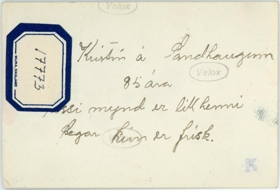 Velox
17773
Kristín á Sandhaugum
Velox
85 ára
mynd er lík henni
þegar hún er frísk.
K